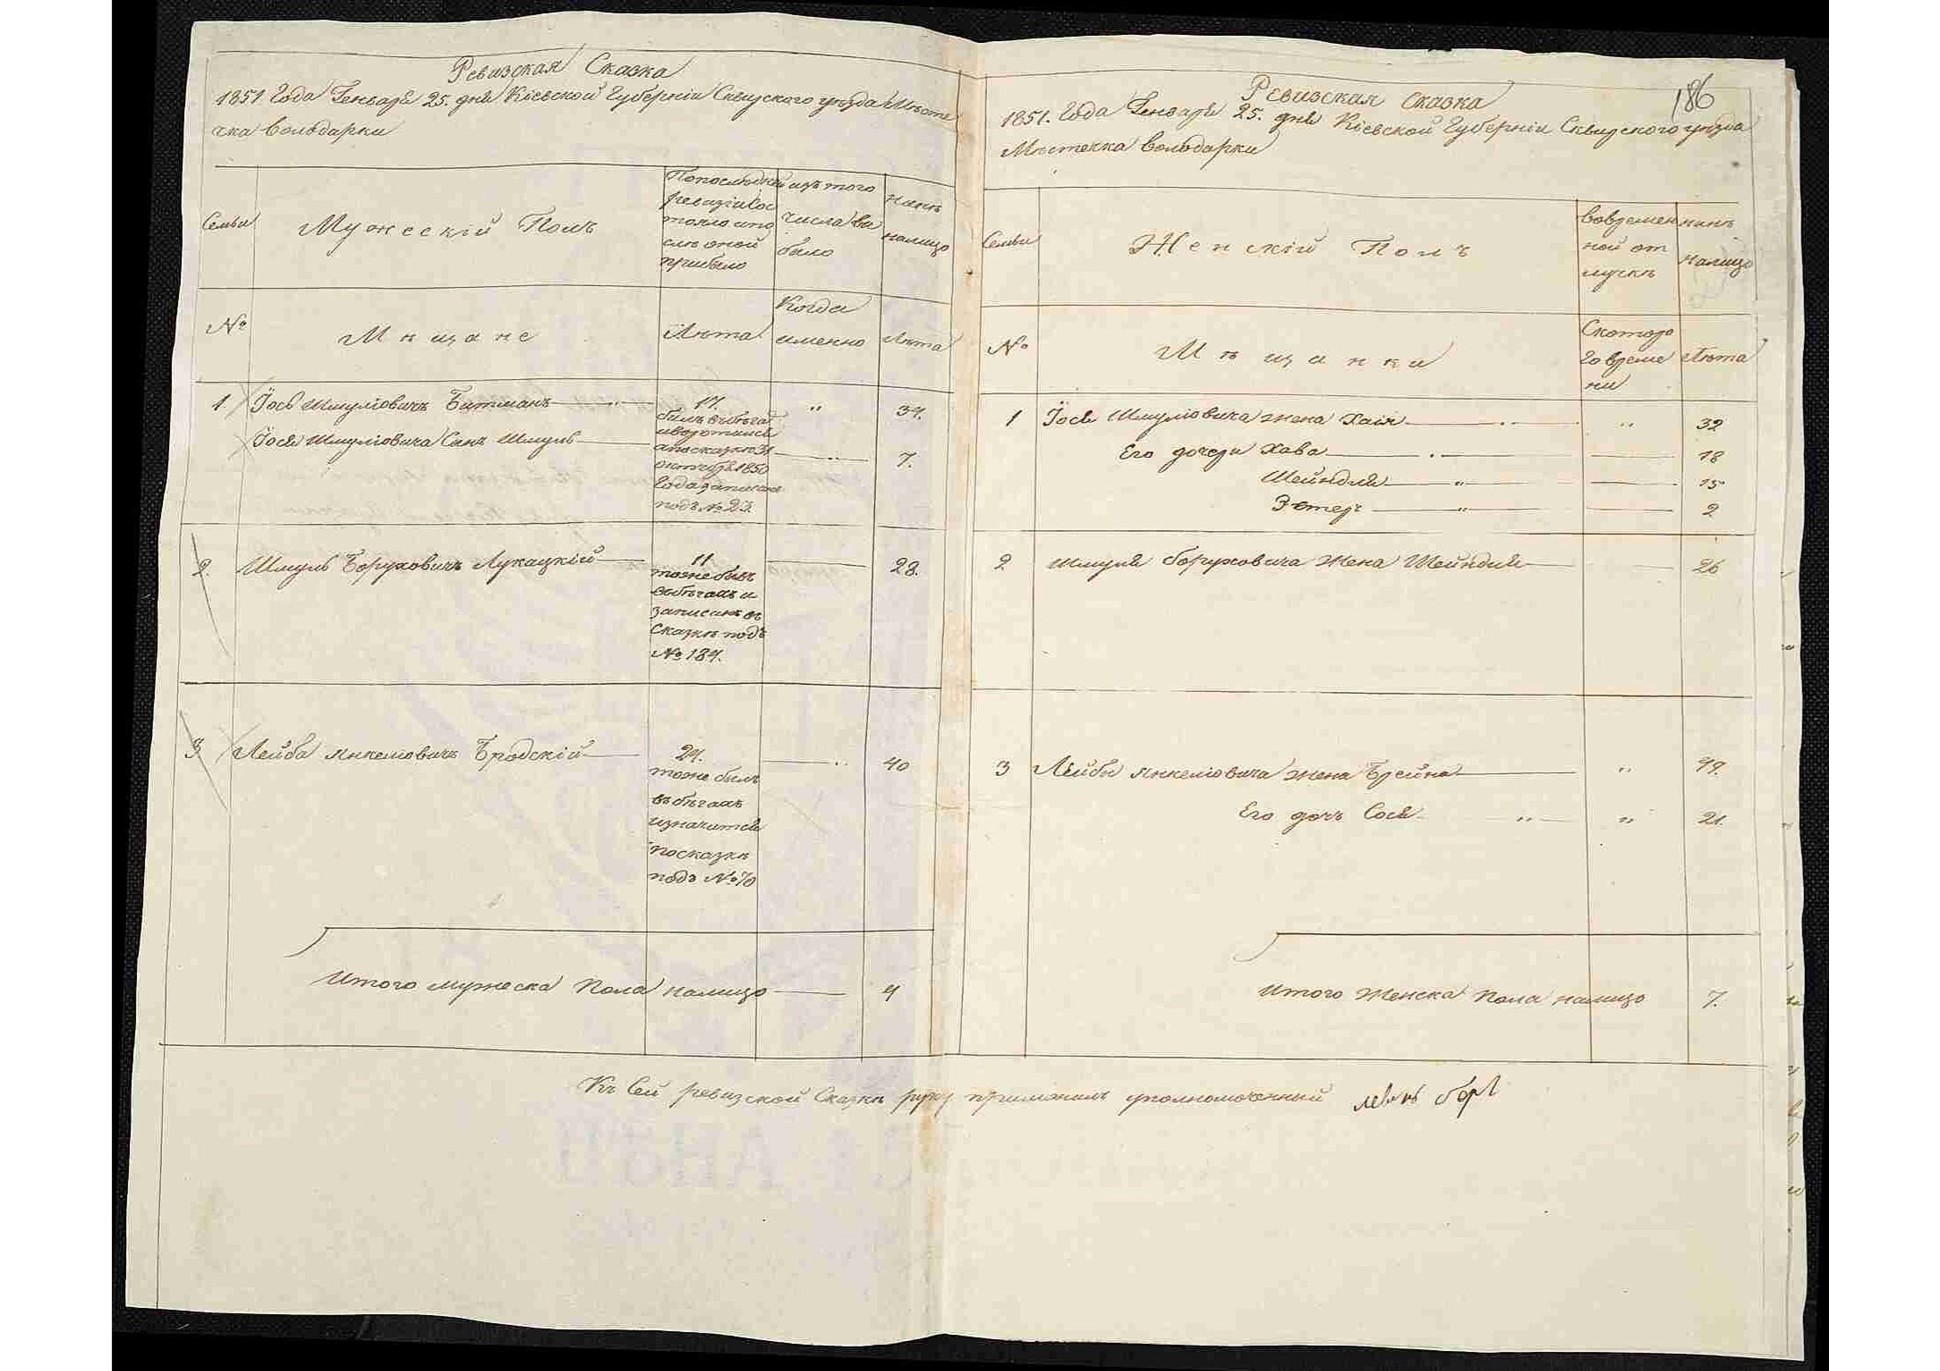 Ревизская Сказка
1851 Года Генваря 25. дня Кіевской Губерніи Сквирского уѣзда Мѣсте
чка Володарки
Семьи
Мужескій Полъ
По последней
ревизіи сос
тояло и по
слѣ оной
прибыло
изъ того
числа вы
было
Нынѣ
налицо
№
Мѣщане
Лѣта
Когда
именно
Лѣта
1 Іось Шмуліовичъ Битманъ 17. „ 37.
былъ въ бѣгах
и воротился
а по сказкѣ 31
октября 1850
Года записанъ
подъ № 23.
Іося Шмуліовича Сынъ Шмуль 7.
2. Шмуль Боруховичъ Лукацкій 11 28.
тоже былъ
въ бѣгахъ и
записанъ въ
Сказкѣ подъ
№ 187.
3 Лейба Янкеліовичъ Бродскій 24. 40
тоже былъ
въ бѣгахъ
и значится
по сказкѣ
подъ № 70
Итого мужеска Пола налицо 4
186
Ревизская Сказка
1851. Года Генваря 25. дня Кіевской Губерніи Сквирского уѣзда
Мѣстечка Володарки
Семьи
Женскій Полъ
во времен
ной от
лучкѣ
нынѣ
налицо
№
Мѣщанки
С котора
го време
ни
Лѣта
1 Іося Шмуліовича жена Хая „ 32
Его дочери Хава 18
Шейндля 15
Эстеръ 2
2 Шмуля Боруховича Жена Шейндля 26
3 Лейбы Янкеліовича жена Брейна „ 47.
Его дочь Сося „ 21.
Итого Женска Пола налицо 7.
Къ Сей ревизской Сказкѣ руку приложилъ уполномоченный